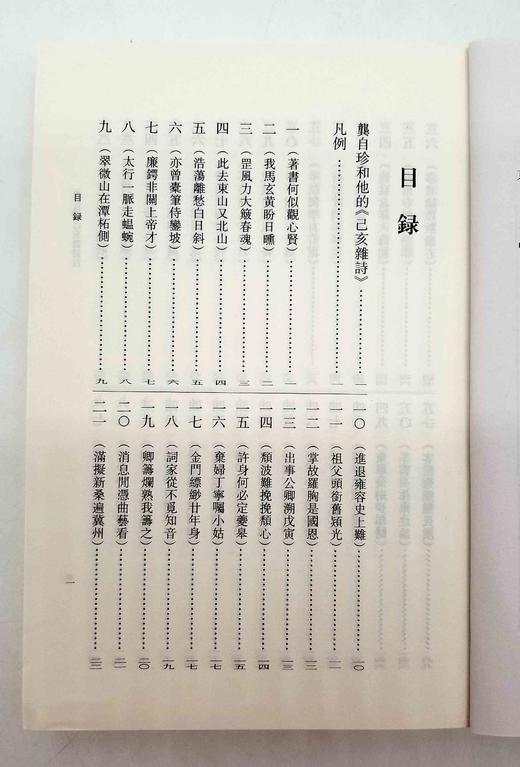 目録
龔自珍和他的《己亥雜詩》……一
凡例……一
一（著書何似觀心賢）……一
二（我馬玄黃盼日曛）……二
三（罡風力大簸春魂）……三
四（此去東山又北山）……四
五（浩蕩離愁白日斜）……五
六（亦曾橐筆侍鑾坡）……六
七（廉鍔非關上帝才）……七
八（太行一脈走蝹蜿）……八
九（翠微山在潭柘側）……九
一〇（進退雍容史上難）……一〇
一一（祖父頭銜舊熲光）……一一
一二（掌故羅胸是國恩）……一二
一三（出事公卿溯戊寅）……一三
一四（頹波難挽挽頹心）……一四
一五（許身何必定夔皋）……一五
一六（棄婦丁寧囑小姑）……一七
一七（金門縹緲廿年身）……一七
一八（詞家從不覓知音）……一九
一九（卿籌爛熟我籌之）……二〇
二〇（消息閒憑曲藝看）……二一
二一（滿擬新桑遍冀州）……二二
目録
一